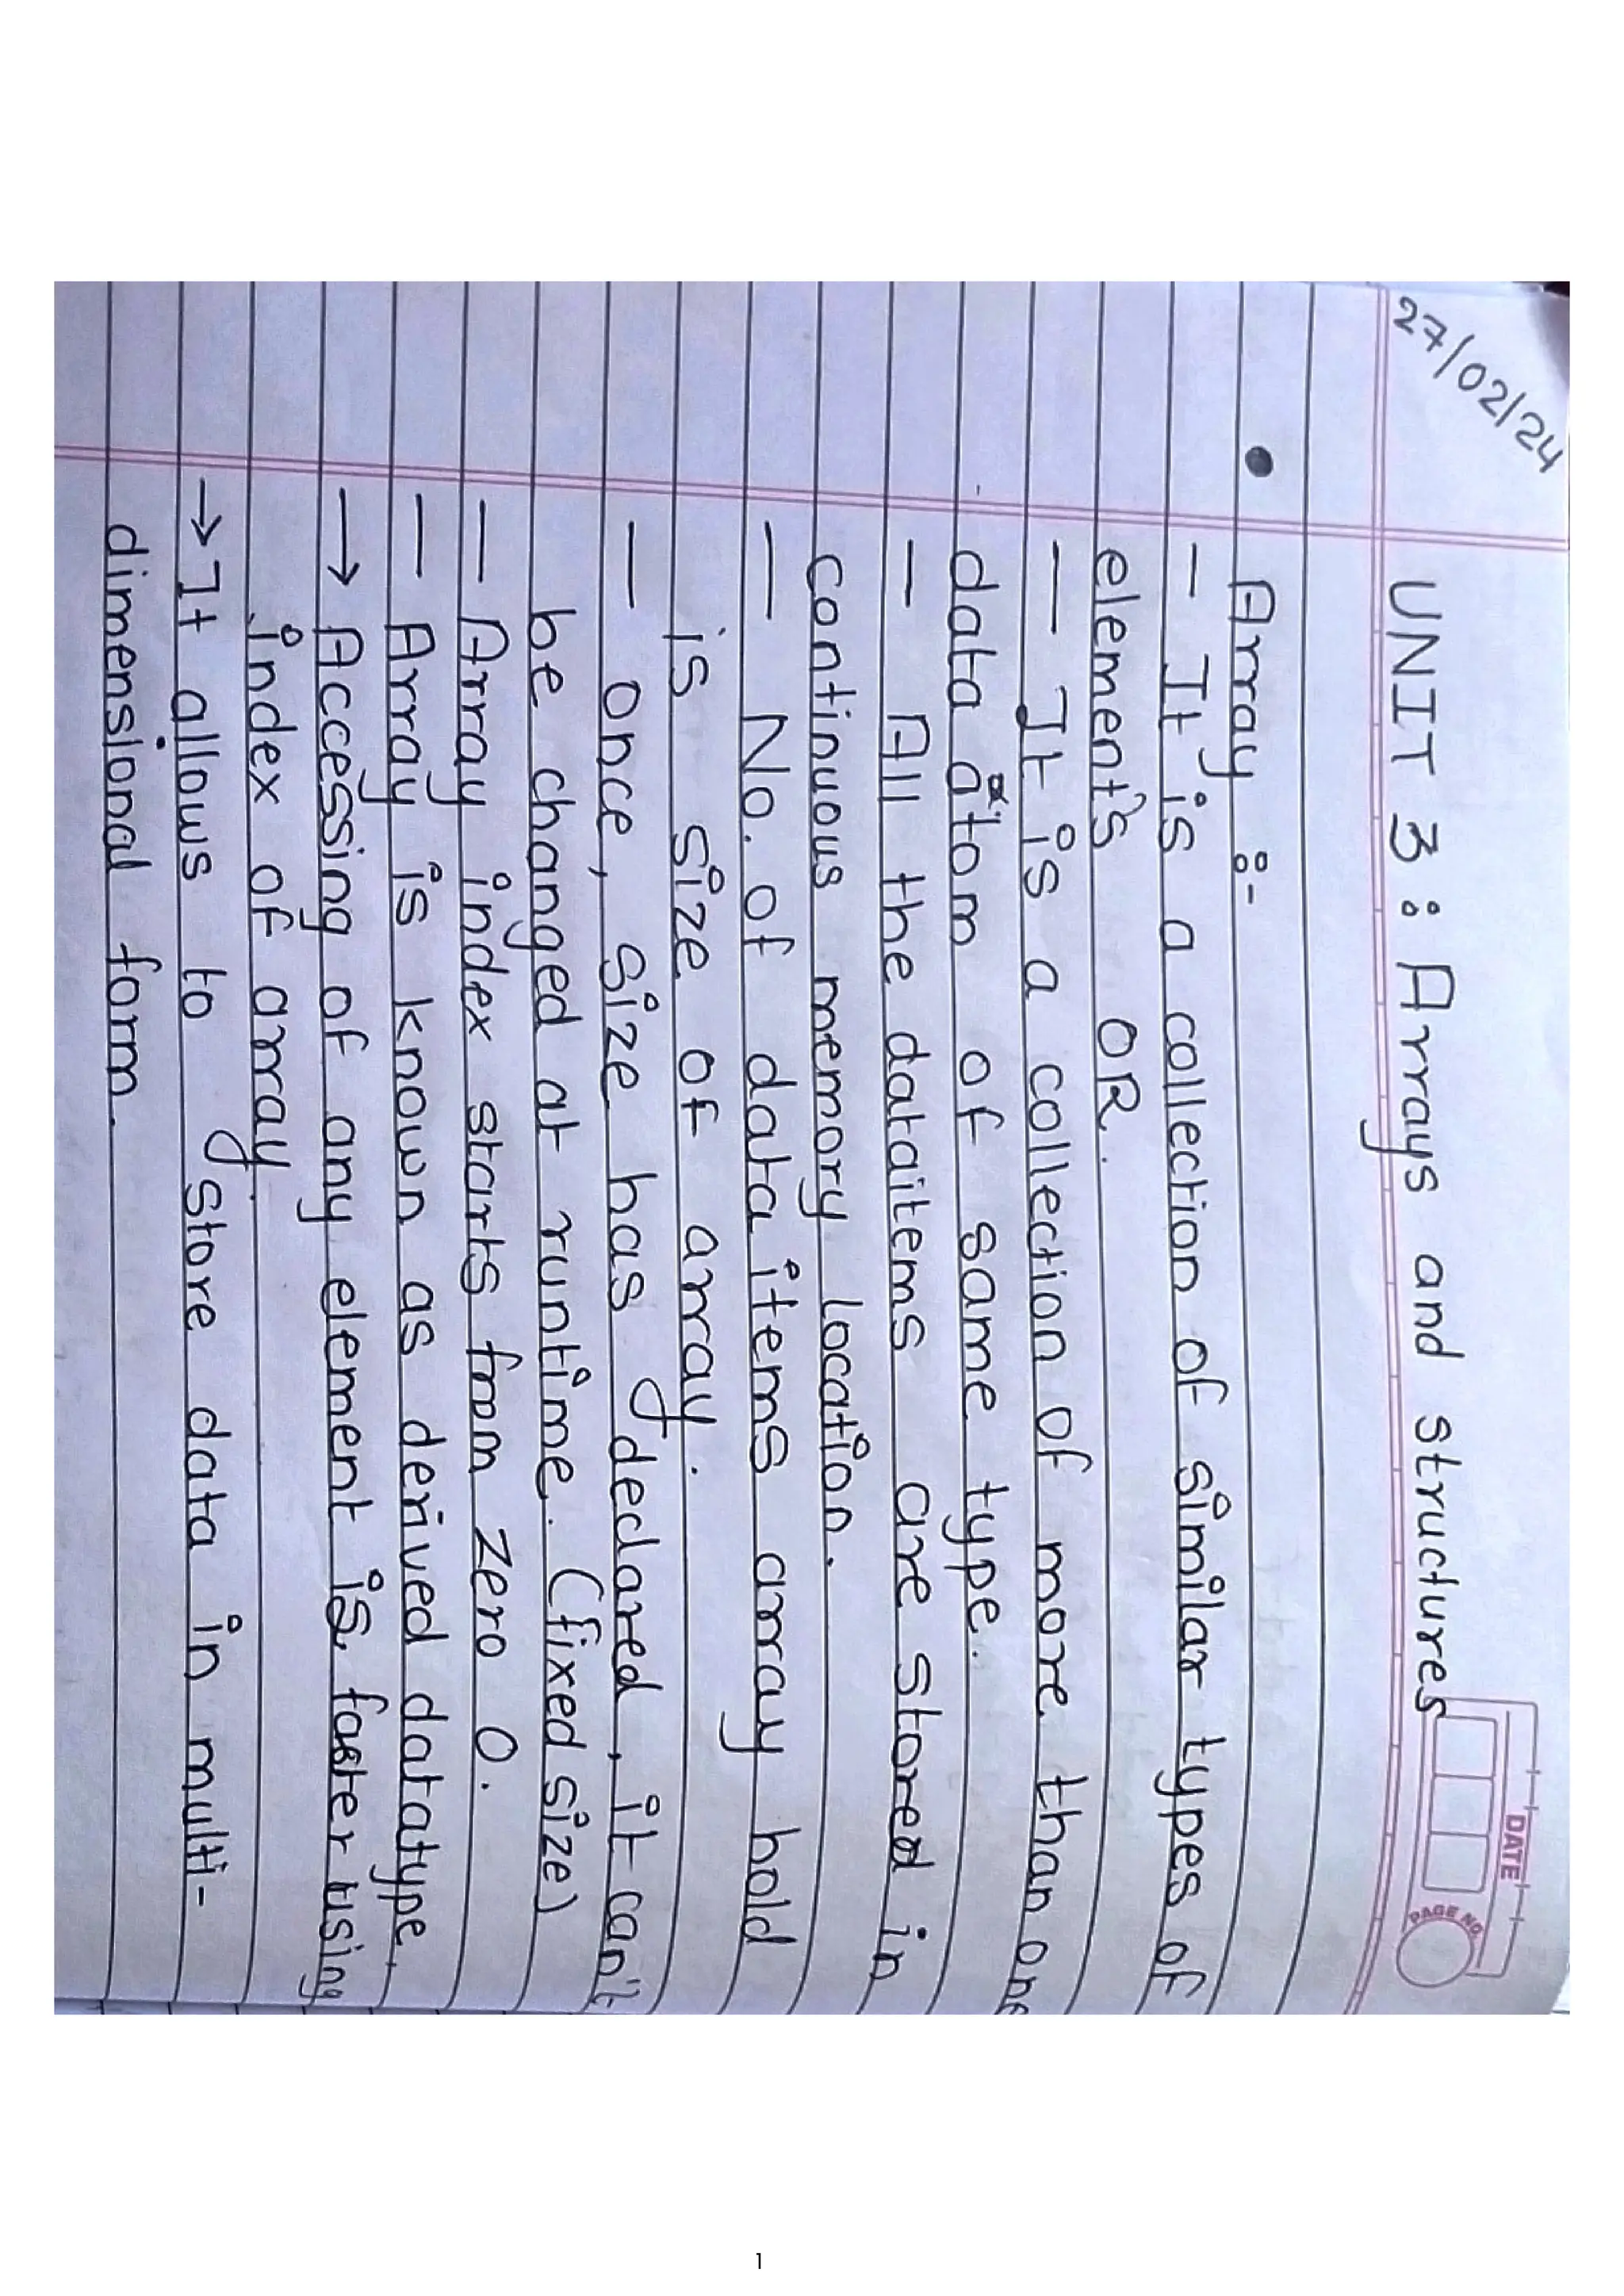 27/02/24
DATE
PAGE NO.
UNIT 3 : Arrays and structures
• Array :-
- It is a collection of similar types of
element's OR.
- It is a collection of more than one
data atom of same type.
- All the dataitems are stored in
continuous memory location.
- No. of data items array hold
is size of array.
- Once, size has declared, it can't
be changed at runtime. (fixed size)
- Array index starts from zero 0.
- Array is known as derived datatype.
→ Accessing of any element is faster using
index of array.
→ It allows to store data in multi-
dimensional form.
1